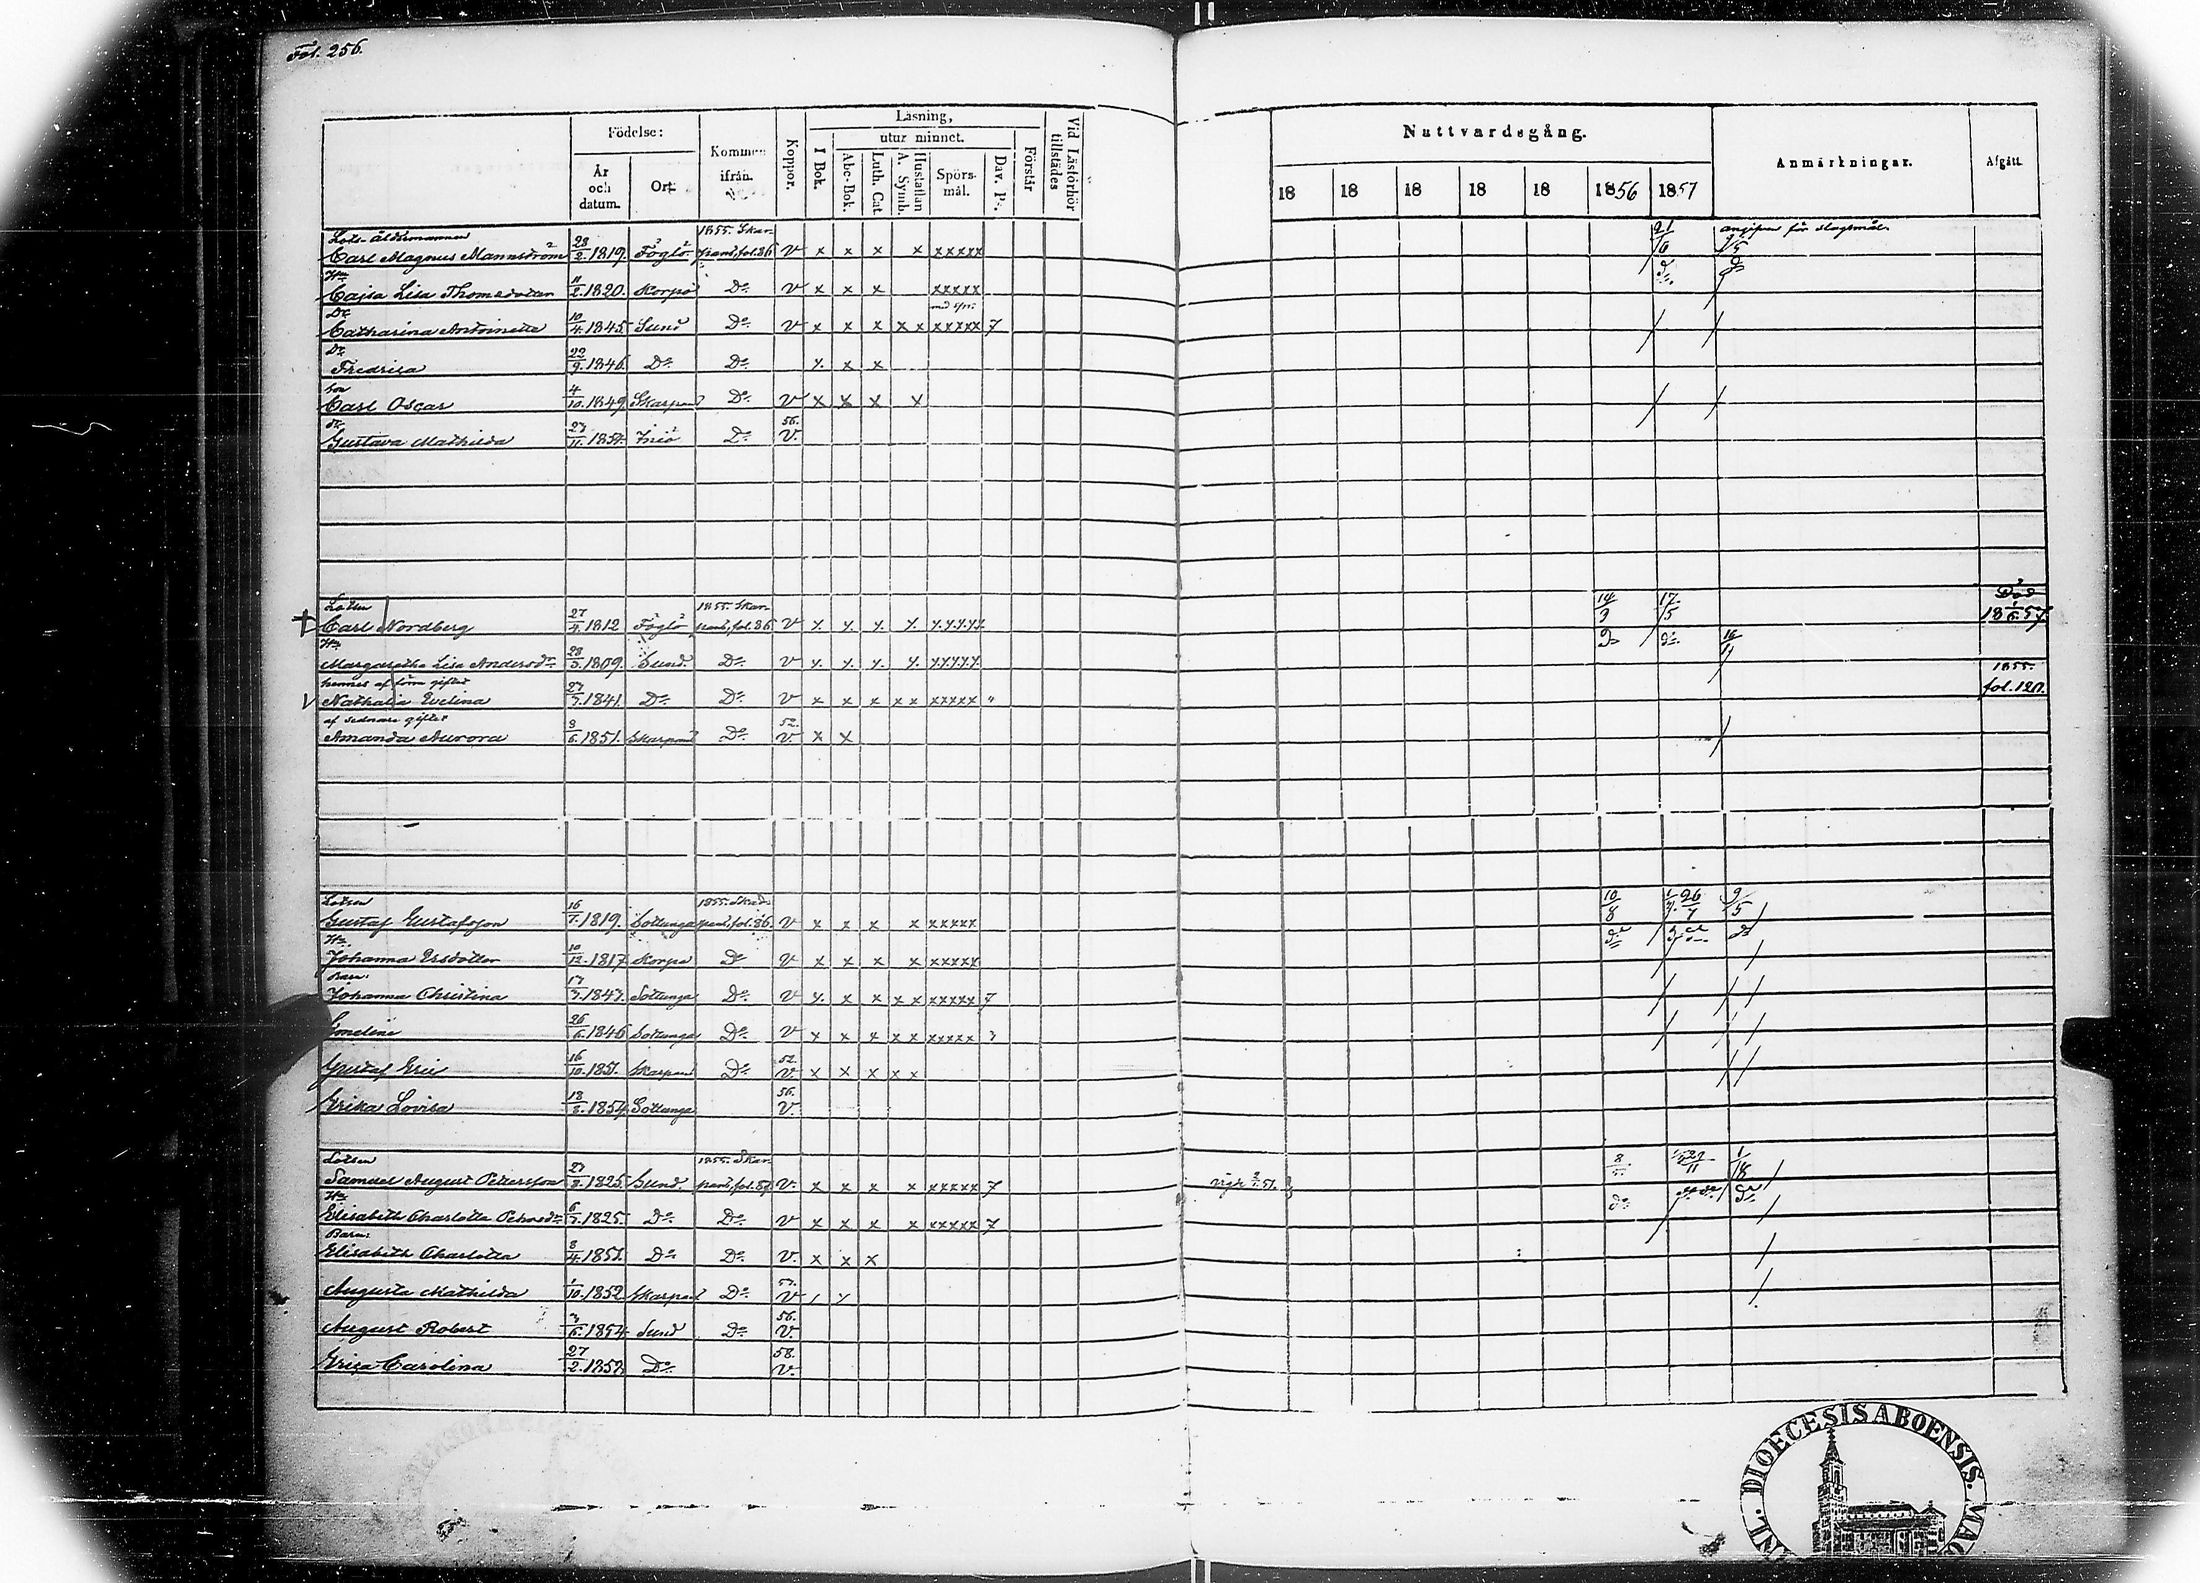 Fol. 256.
Födelse:
År och datum.
Ort.
Kommen ifrån.
Koppor.
Läsning,
utur minnet.
I Bok.
Abc-Bok.
Luth. Cat.
Hustaflan A. Symb.
Spörs-mål.
Dav. Ps.
Förstår
Vid Läsförhör tillstädes
Nattvardsgång.
18 18 18 18 18 1856 1857
Anmärkningar.
Afgått.
Lots-åldermannen 1855. Skar-
Carl Magnus Mannström 23/2 1819. Föglö pans, fol. 86 v x x x x xxxxx 21/6 angifven för slagsmål.
Hu
Cajsa Lisa Thomsdotter 11/2 1820. Korpo Do v x x x xxxxx
Dr
Catharina Antoinetta 10/4 1845 Sund Do v x x x x x xxxxx 7
Dr
Fredrica 22/9 1846. Do Do x x x
Son
Carl Oscar 4/10 1849. Skarpans Do v x x x x
dr 56.
Gustava Mathilda 27/11 1854 Iniö Do v.
Lotsen 1855. Skar-
Carl Nordberg 27/4 1812 Föglö pans, fol. 86 v x x x x xxxxx 14/3 17/5 Död 18 1/6 57
Hu
Margaretha Lisa Andersdr 28/5 1809. Sund. Do v x x x x xxxxx 16/11
hennes af förra giftet 1855.
Nathalia Evelina 27/7 1841. Do Do v x x x x x xxxxx fol. 120.
af sednare giftet 52.
Amanda Aurora 3/6 1851. Skarpans Do v. x x
Lotsen 1855. Skar-
Gustaf Gustafsson 16/7 1819. Sottunga pans, fol. 86. v x x x xxxxx 10/8 9/5
Hu
Johanna Ersdotter 10/12 1817 Korpo Do v x x x x xxxxx
Barn:
Johanna Christina 17/3 1843. Sottunga Do v x x x x x xxxxx 7
Emeline 26/6 1846 Sottunga Do v x x x x x xxxxx
52.
Gustaf Eric 16/10 1851. Skarpans Do v. x x x x x
56.
Erika Lovisa 18/8 1854 Sottunga v.
Lotsen 1855. Skar-
Samuel August Pettersson 27/8 1825. Sund. pans, fol. 87 v. x x x x xxxxx 7
Hu
Elisabeth Charlotta 6/7 1825. Do Do v x x x x xxxxx 7
Barn:
Elisabeth Charlotta 8/4 1851. Do Do v. x x x
53.
Augusta Mathilda 1/10 1852 Skarpans Do v
56.
August Robert 3/6 1854 Sund Do v.
58.
Erica Carolina 27/2 1857. Do v.
DIOECESIS ABOENSIS.